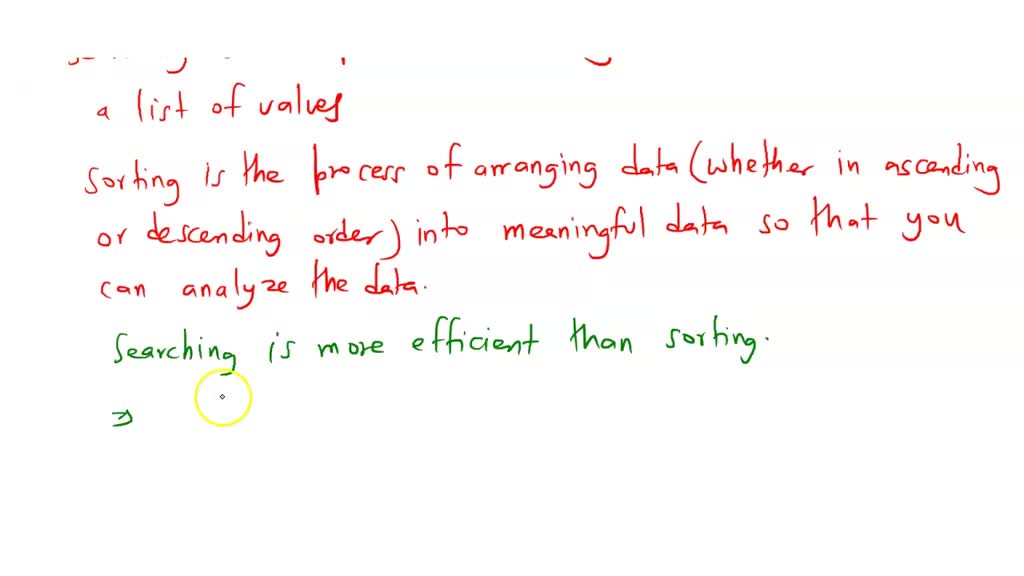 a list of values
Sorting is the process of arranging data (whether in ascending
or descending order) into meaningful data so that you
can analyze the data.
Searching is more efficient than sorting.
⇒